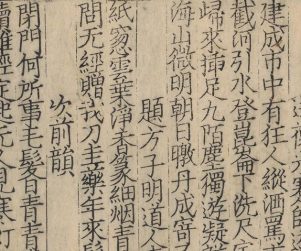 建成市中有狂人縱酒罵
截河引水登崑崙下洗
歸來濡足九陌塵獨遊
海山微明朝日暾丹成寄
題方子明道人
紙窓雲葉淨香篆細烟青
問无經贈我刀圭藥年來
次前韻
閉門何所事毛髮日青青